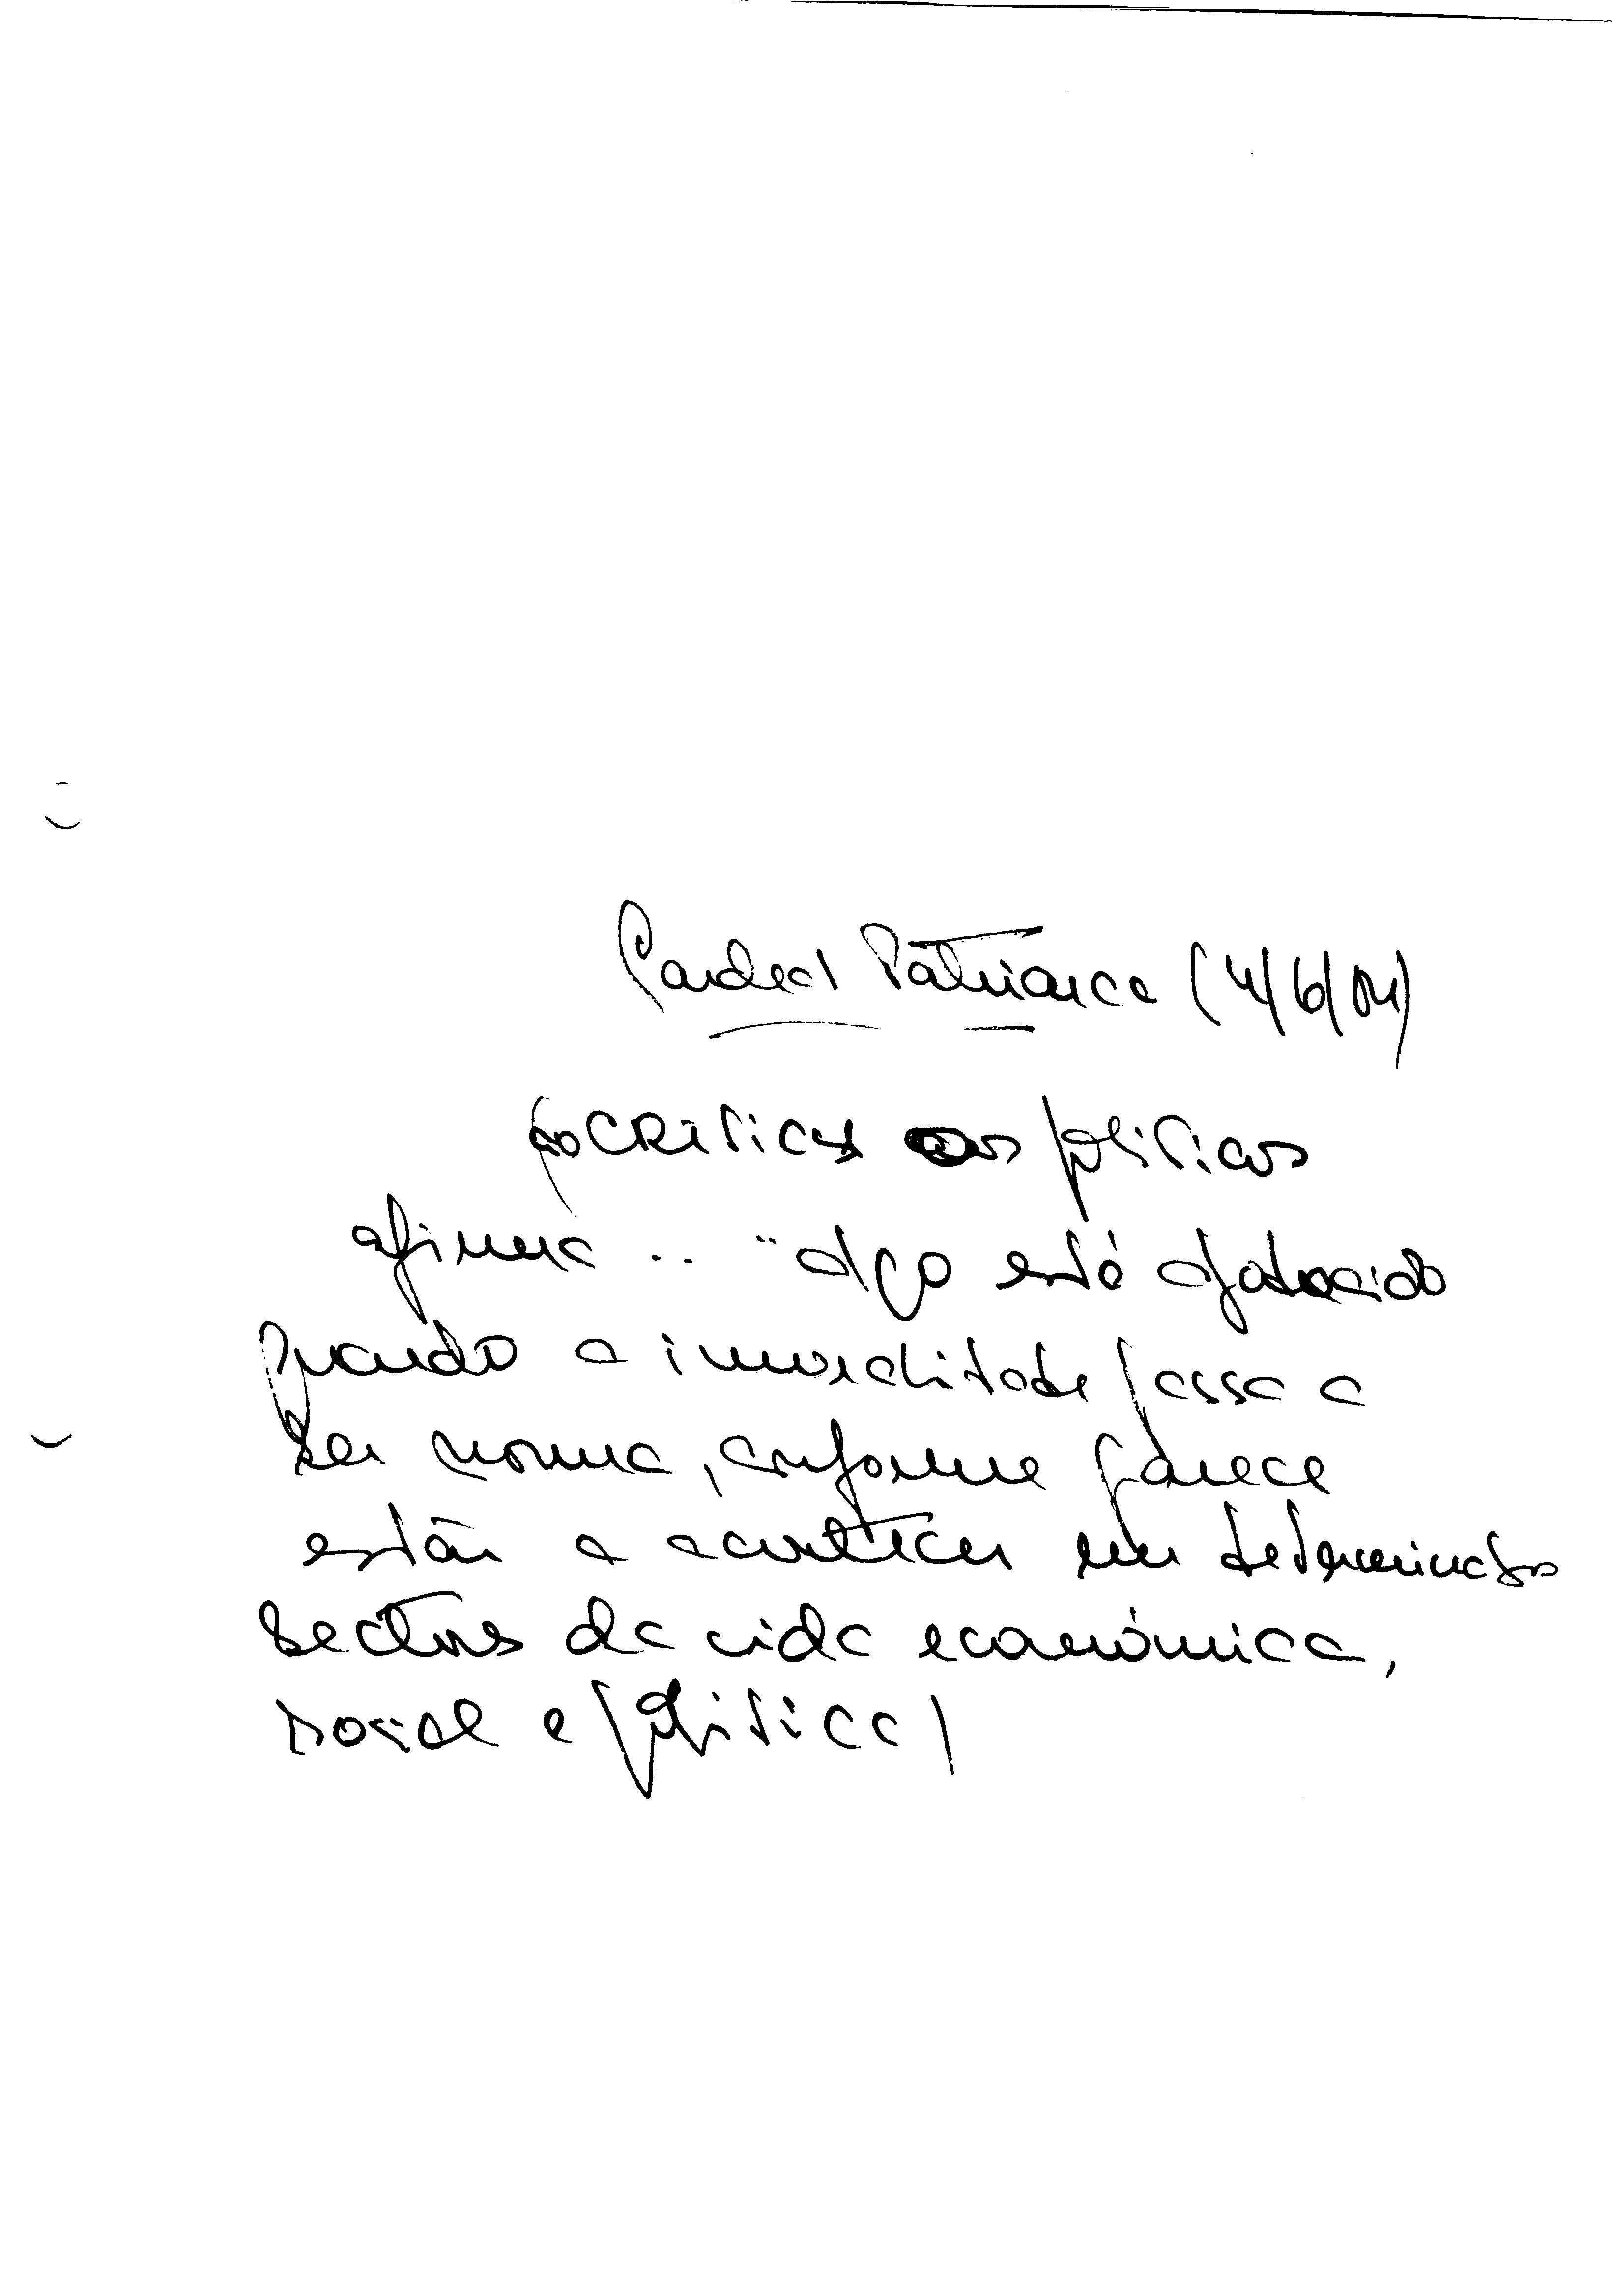 Cardeal Patriarca (4/6/04)
ao criticar os políticos
afirma .. "algo está apodrecido
quando a imoralidade passa a
ser norma, conforme parece
estar a acontecer em determinados
sectores da vida económica,
social e política!